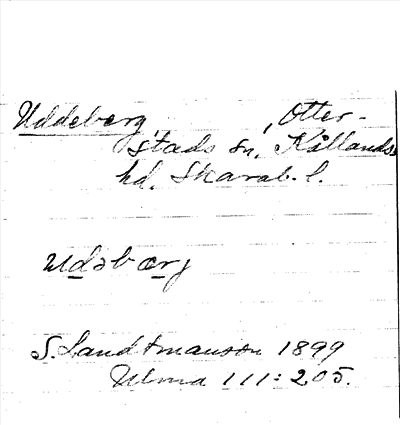 Uddeberg, Otter-
stads sn, Kållands
hd, Skarab. l.
Udəbærj
S. Landtmanson 1899
Ulma 111:205.